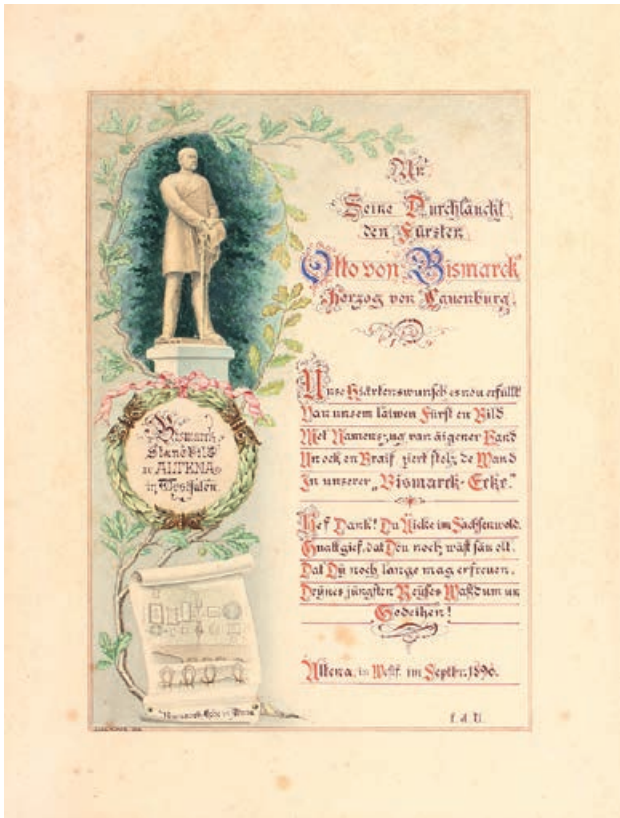 An
Seine Durchlaucht
den Fürsten
Otto von Bismarck
Herzog von Lauenburg.
Unse Hiärtenswunsch es nou erfüllt
Van unsem laiwen Fürst en Bild
Met Namenszug van äigener Hand
Un ock en Braif ziert stolz de Wand
In unserer „Bismarck-Ecke."
Hef Dank! Du Aicke im Sachsenwold.
Guatt gief, dat Dou noch wäst sau olt.
Dat Dy noch lange mag erfreuen,
Deynes jüngsten Reyses Waßdum un
Godeihen!
Altena, in Westf. im Septbr. 1896.
Bismarck
Standbild
zu ALTENA
in Westfalen.